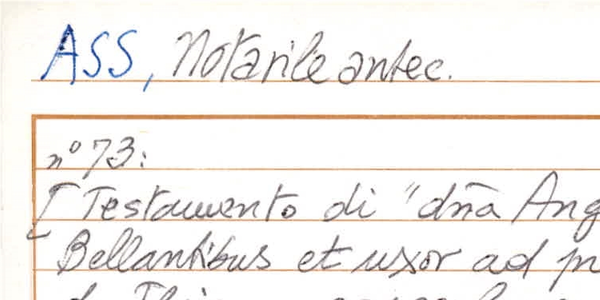 ASS, Notarile antec.
n° 73:
[ Testamento di "dña Ang
Bellantibus et uxor ad p